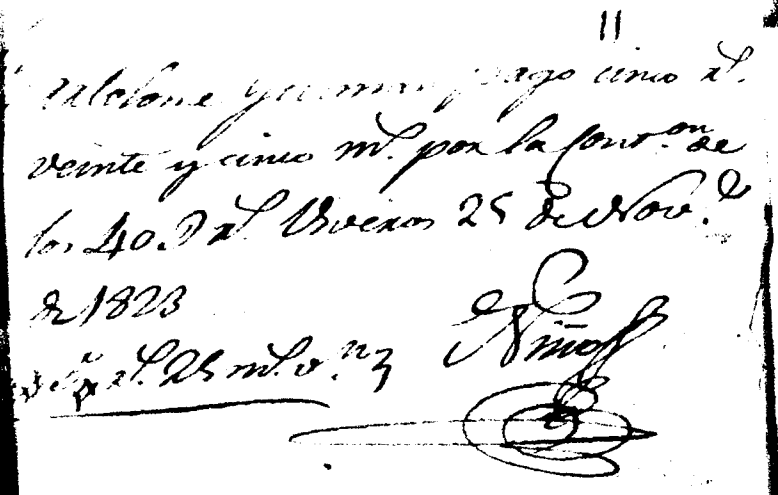 11
pago cinco rs.
veinte y cinco ms. por la Cont.on de
los 40.D rs. Viveros 25 de Nov.e
de 1823
Niño
rs. 25 ms. v.n